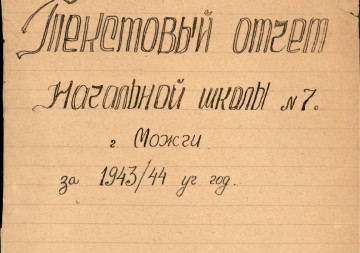 Текстовый отчет
Начальной школы № 7.
г Можги
за 1943/44 уч год.